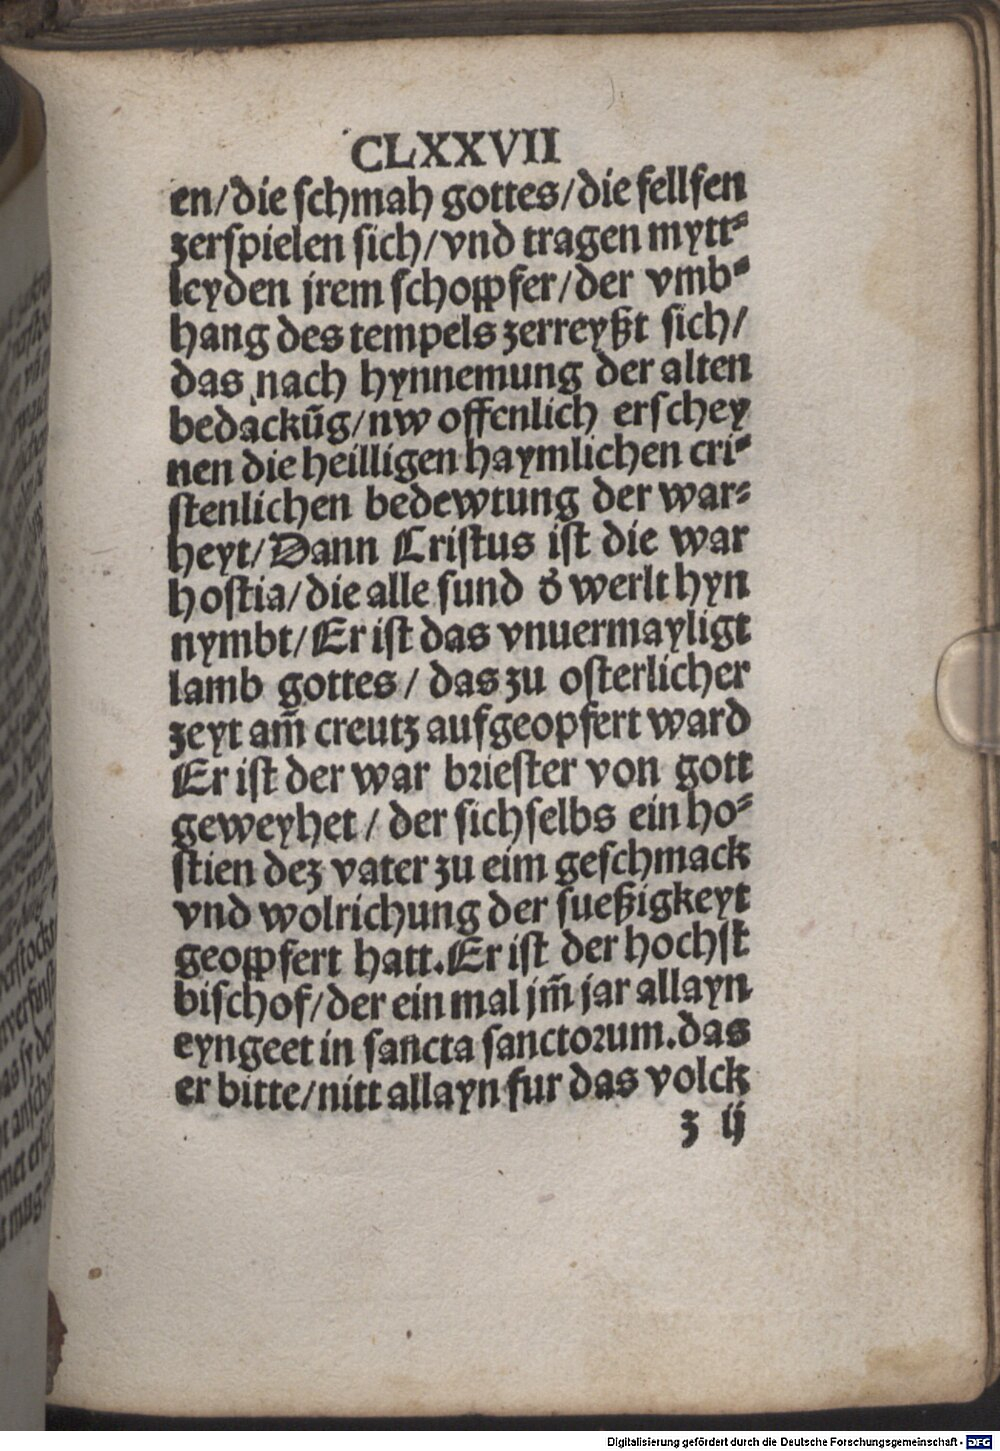 CLXXVII
en/die schmah gottes/die fellsen
zerspielen sich/vnd tragen mytt⸗
leyden jrem schoppfer/der vmb⸗
hang des tempels zerreyßt sich/
das nach hynnemung der alten
bedackūg/nw offenlich erschey
nen die heilligen haymlichen cri⸗
stenlichen bedewtung der war⸗
heyt/Dann Cristus ist die war
hostia/die alle sund d̕ werlt hyn
nymbt/Er ist das vnuermayligt
lamb gottes/das zu osterlicher
zeyt am̄ creutz aufgeopfert ward
Er ist der war briester von gott
geweyhet/der sichselbs ein ho⸗
stien dez vater zu eim geschmack
vnd wolrichung der sueßigkeyt
geoppfert hatt.Er ist der hochst
bischof/der ein mal jm̄ jar allayn
eyngeet in sancta sanctorum.das
er bitte/nitt allayn fur das volck
z ij
Digitalisierung gefördert durch die Deutsche Forschungsgemeinschaft - DFG